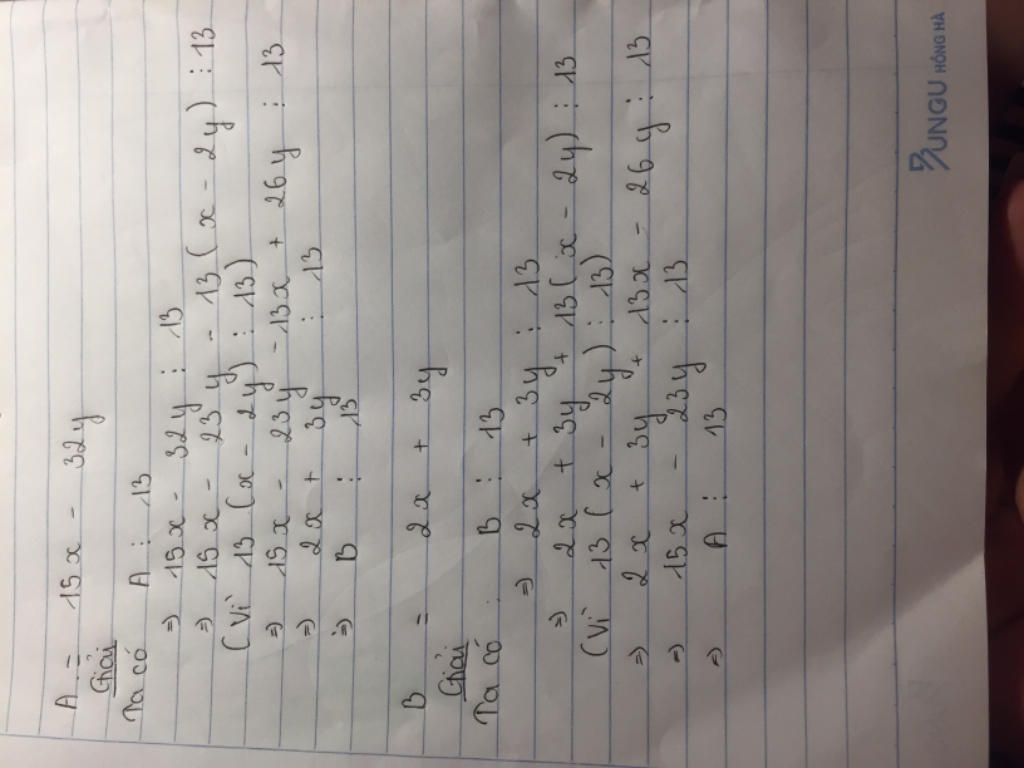 A = 15x - 32y
Giải
Ta có A ⋮ 13
=> 15x - 32y ⋮ 13
=> 15x - 23y - 13(x - 2y) ⋮ 13
(Vì 13(x - 2y) ⋮ 13)
=> 15x - 23y - 13x + 26y ⋮ 13
=> 2x + 3y ⋮ 13
=> B ⋮ 13
B = 2x + 3y
Giải
Ta có B ⋮ 13
=> 2x + 3y ⋮ 13
=> 2x + 3y + 13(x - 2y) ⋮ 13
(Vì 13(x - 2y) ⋮ 13)
=> 2x + 3y + 13x - 26y ⋮ 13
=> 15x - 23y ⋮ 13
=> A ⋮ 13
HỒNG HÀ